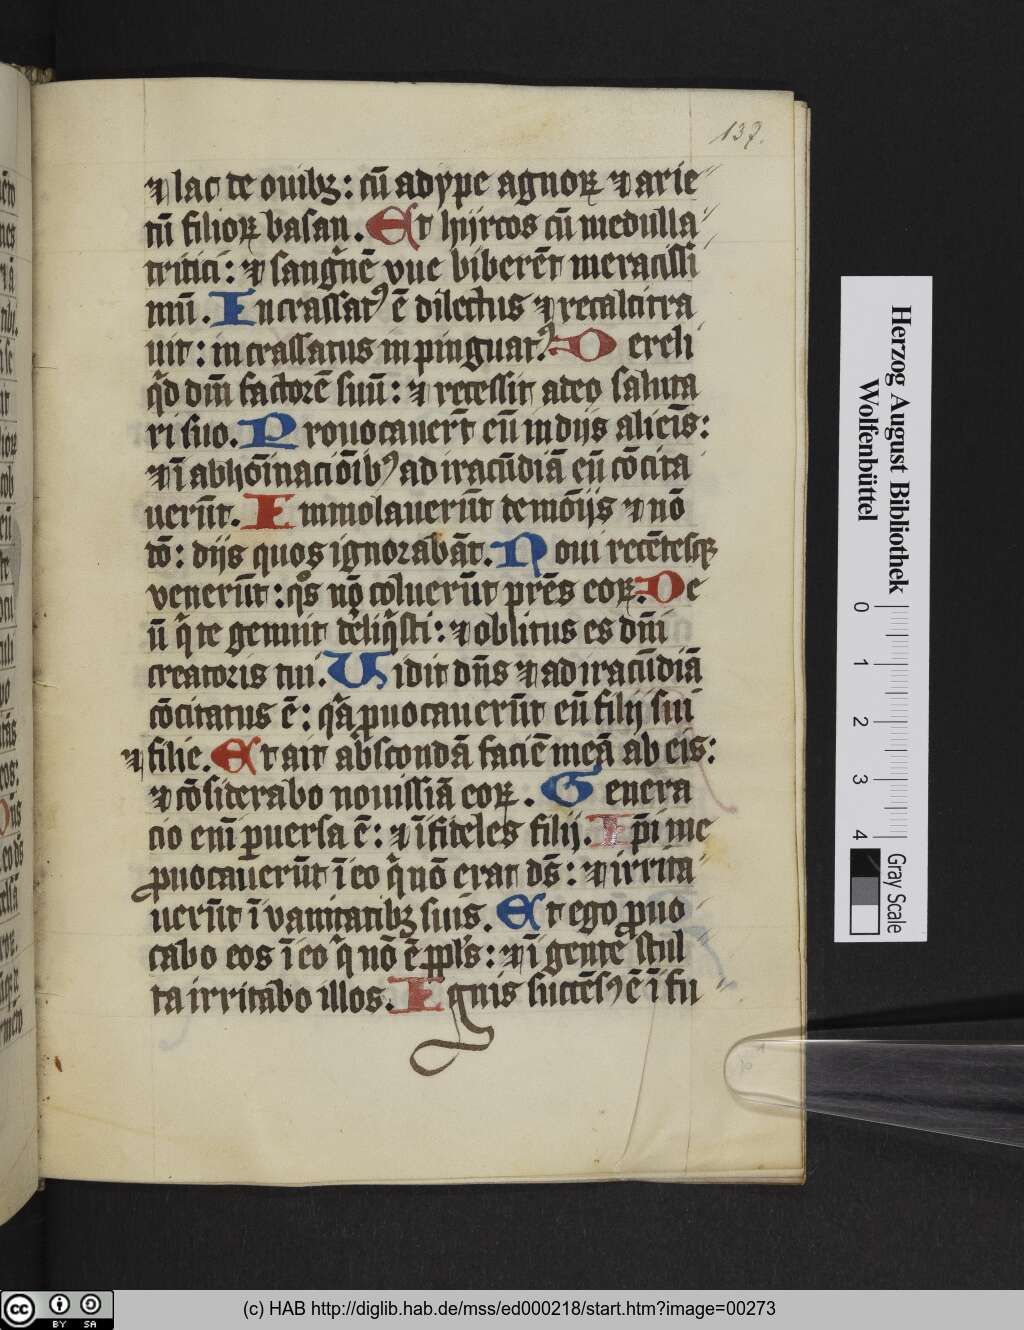 137.
⁊ lac de ouibꝫ : cū adype agnoꝝ ⁊ arie
tū filioꝝ basan . Et hyrcos cū medulla
tritici : ⁊ sangᷓnē vue biberēt meracissi
mū . Incrassatꝰ ē dilectus ⁊ recalcitra
uit : incrassatus inpinguatꝰ. Dereli
qͥd dm̄ factorē suū : ⁊ recessit a deo saluta
ri suo. Prouocauert̄ eū in dijs alieīs :
⁊ ī abhōinaciōibꝰ ad iracūdiā eū cōcita
uerūt. Immolauerūt demōijs ⁊ nō
dō : dijs quos ignorabāt. Noui recētesqꝫ
venerūt : qͦs nō coluerūt prēs eoꝝ. De
ū qͥ te genuit dēliqͥsti : ⁊ oblitus es dm̄i
creatoris tui. Uidit dn̄s ⁊ ad iracūdiā
cōcitatus ē : qᷓa ꝓuocauerūt eū filij sui
⁊ filie. Et ait abscondā faciē meā ab eis :
⁊ cōsiderabo nouissīa eoꝝ . Genera
cio enī ꝑuersa ē : ⁊ īfideles filij. Ip̄i me
ꝓuocauerūt ī eo qͥ nō erat ds̄ : ⁊ irrita
uerūt ī vanitatibꝫ suis. Et ego ꝓuo
cabo eos ī eo qͥ nō ē ppl̄s : ⁊ ī gente stul
ta irritabo illos. Ignis succēsꝰ ē ī fu
Herzog August Bibliothek
Wolfenbüttel
0 1 2 3 4
Gray Scale
cc BY SA
(c) HAB http://diglib.hab.de/mss/ed000218/start.htm?image=00273